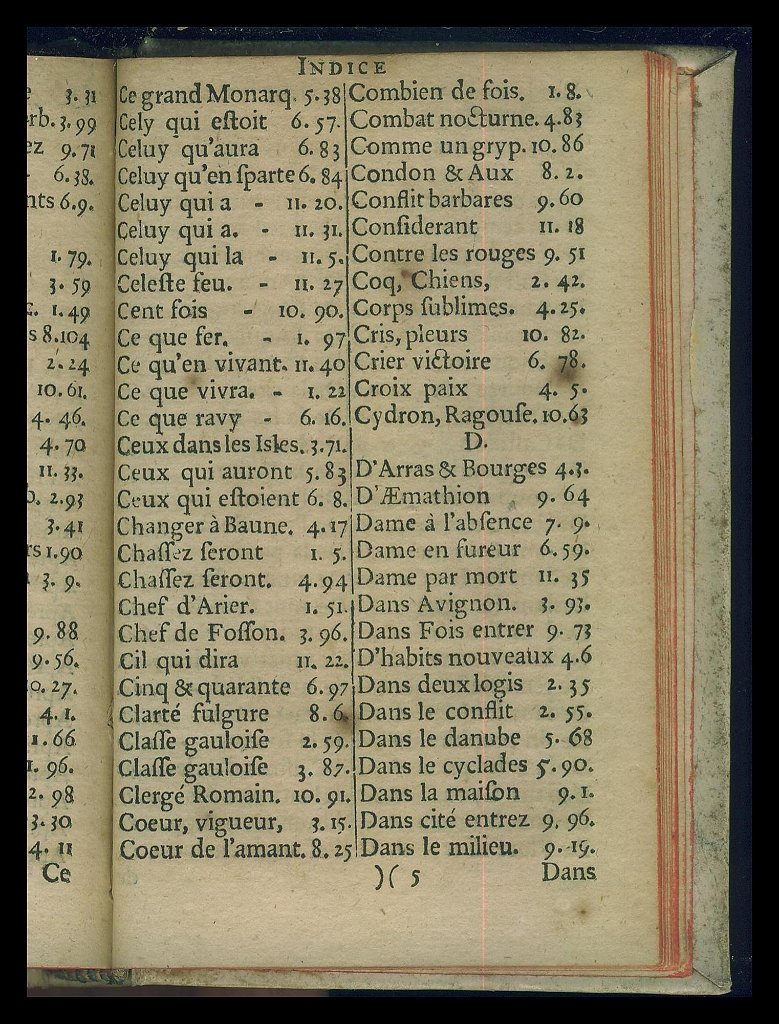 3. 31
rb. 3. 99
ez 9. 71
6. 38.
nts 6. 9.
1. 79.
3. 59
1. 49
s 8. 104
2. 24
10. 61.
4. 46.
4. 70
11. 33.
2. 93
3. 41
rs 1. 90
3. 9.
9. 88
9. 56.
0. 27.
4. 1.
1. 66
1. 96.
2. 98
3. 30
4. 11
Ce
INDICE
Ce grand Monarq. 5. 38
Cely qui eſtoit 6. 57.
Celuy qu'aura 6. 83
Celuy qu'en ſparte 6. 84
Celuy qui a - 11. 20.
Celuy qui a. - 11. 31.
Celuy qui la - 11. 5.
Celeſte feu. - 11. 27
Cent fois - 10. 90.
Ce que fer. - 1. 97
Ce qu'en vivant. 11. 40
Ce que vivra. - 1. 22
Ce que ravy - 6. 16.
Ceux dans les Isles. 3. 71.
Ceux qui auront 5. 83
Ceux qui eſtoient 6. 8.
Changer à Baune. 4. 17
Chaſſez ſeront 1. 5.
Chaſſez ſeront. 4. 94
Chef d'Arier. 1. 51.
Chef de Foſſon. 3. 96.
Cil qui dira 11. 22.
Cinq & quarante 6. 97
Clarté fulgure 8. 6.
Claſſe gauloiſe 2. 59.
Claſſe gauloiſe 3. 87.
Clergé Romain. 10. 91.
Coeur, vigueur, 3. 15.
Coeur de l'amant. 8. 25
Combien de fois. 1. 8.
Combat nocturne. 4. 83
Comme un gryp. 10. 86
Condon & Aux 8. 2.
Conflit barbares 9. 60
Conſiderant 11. 18
Contre les rouges 9. 51
Coq, Chiens, 2. 42.
Corps ſublimes. 4. 25.
Cris, pleurs 10. 82.
Crier victoire 6. 78.
Croix paix 4. 5.
Cydron, Ragouſe. 10. 63
D.
D'Arras & Bourges 4. 3.
D'Æmathion 9. 64
Dame à l'abſence 7. 9.
Dame en fureur 6. 59.
Dame par mort 11. 35
Dans Avignon. 3. 93.
Dans Fois entrer 9. 73
D'habits nouveaux 4. 6
Dans deux logis 2. 35
Dans le conflit 2. 55.
Dans le danube 5. 68
Dans le cyclades 5. 90.
Dans la maiſon 9. 1.
Dans cité entrez 9. 96.
Dans le milieu. 9. 19.
)( 5 Dans